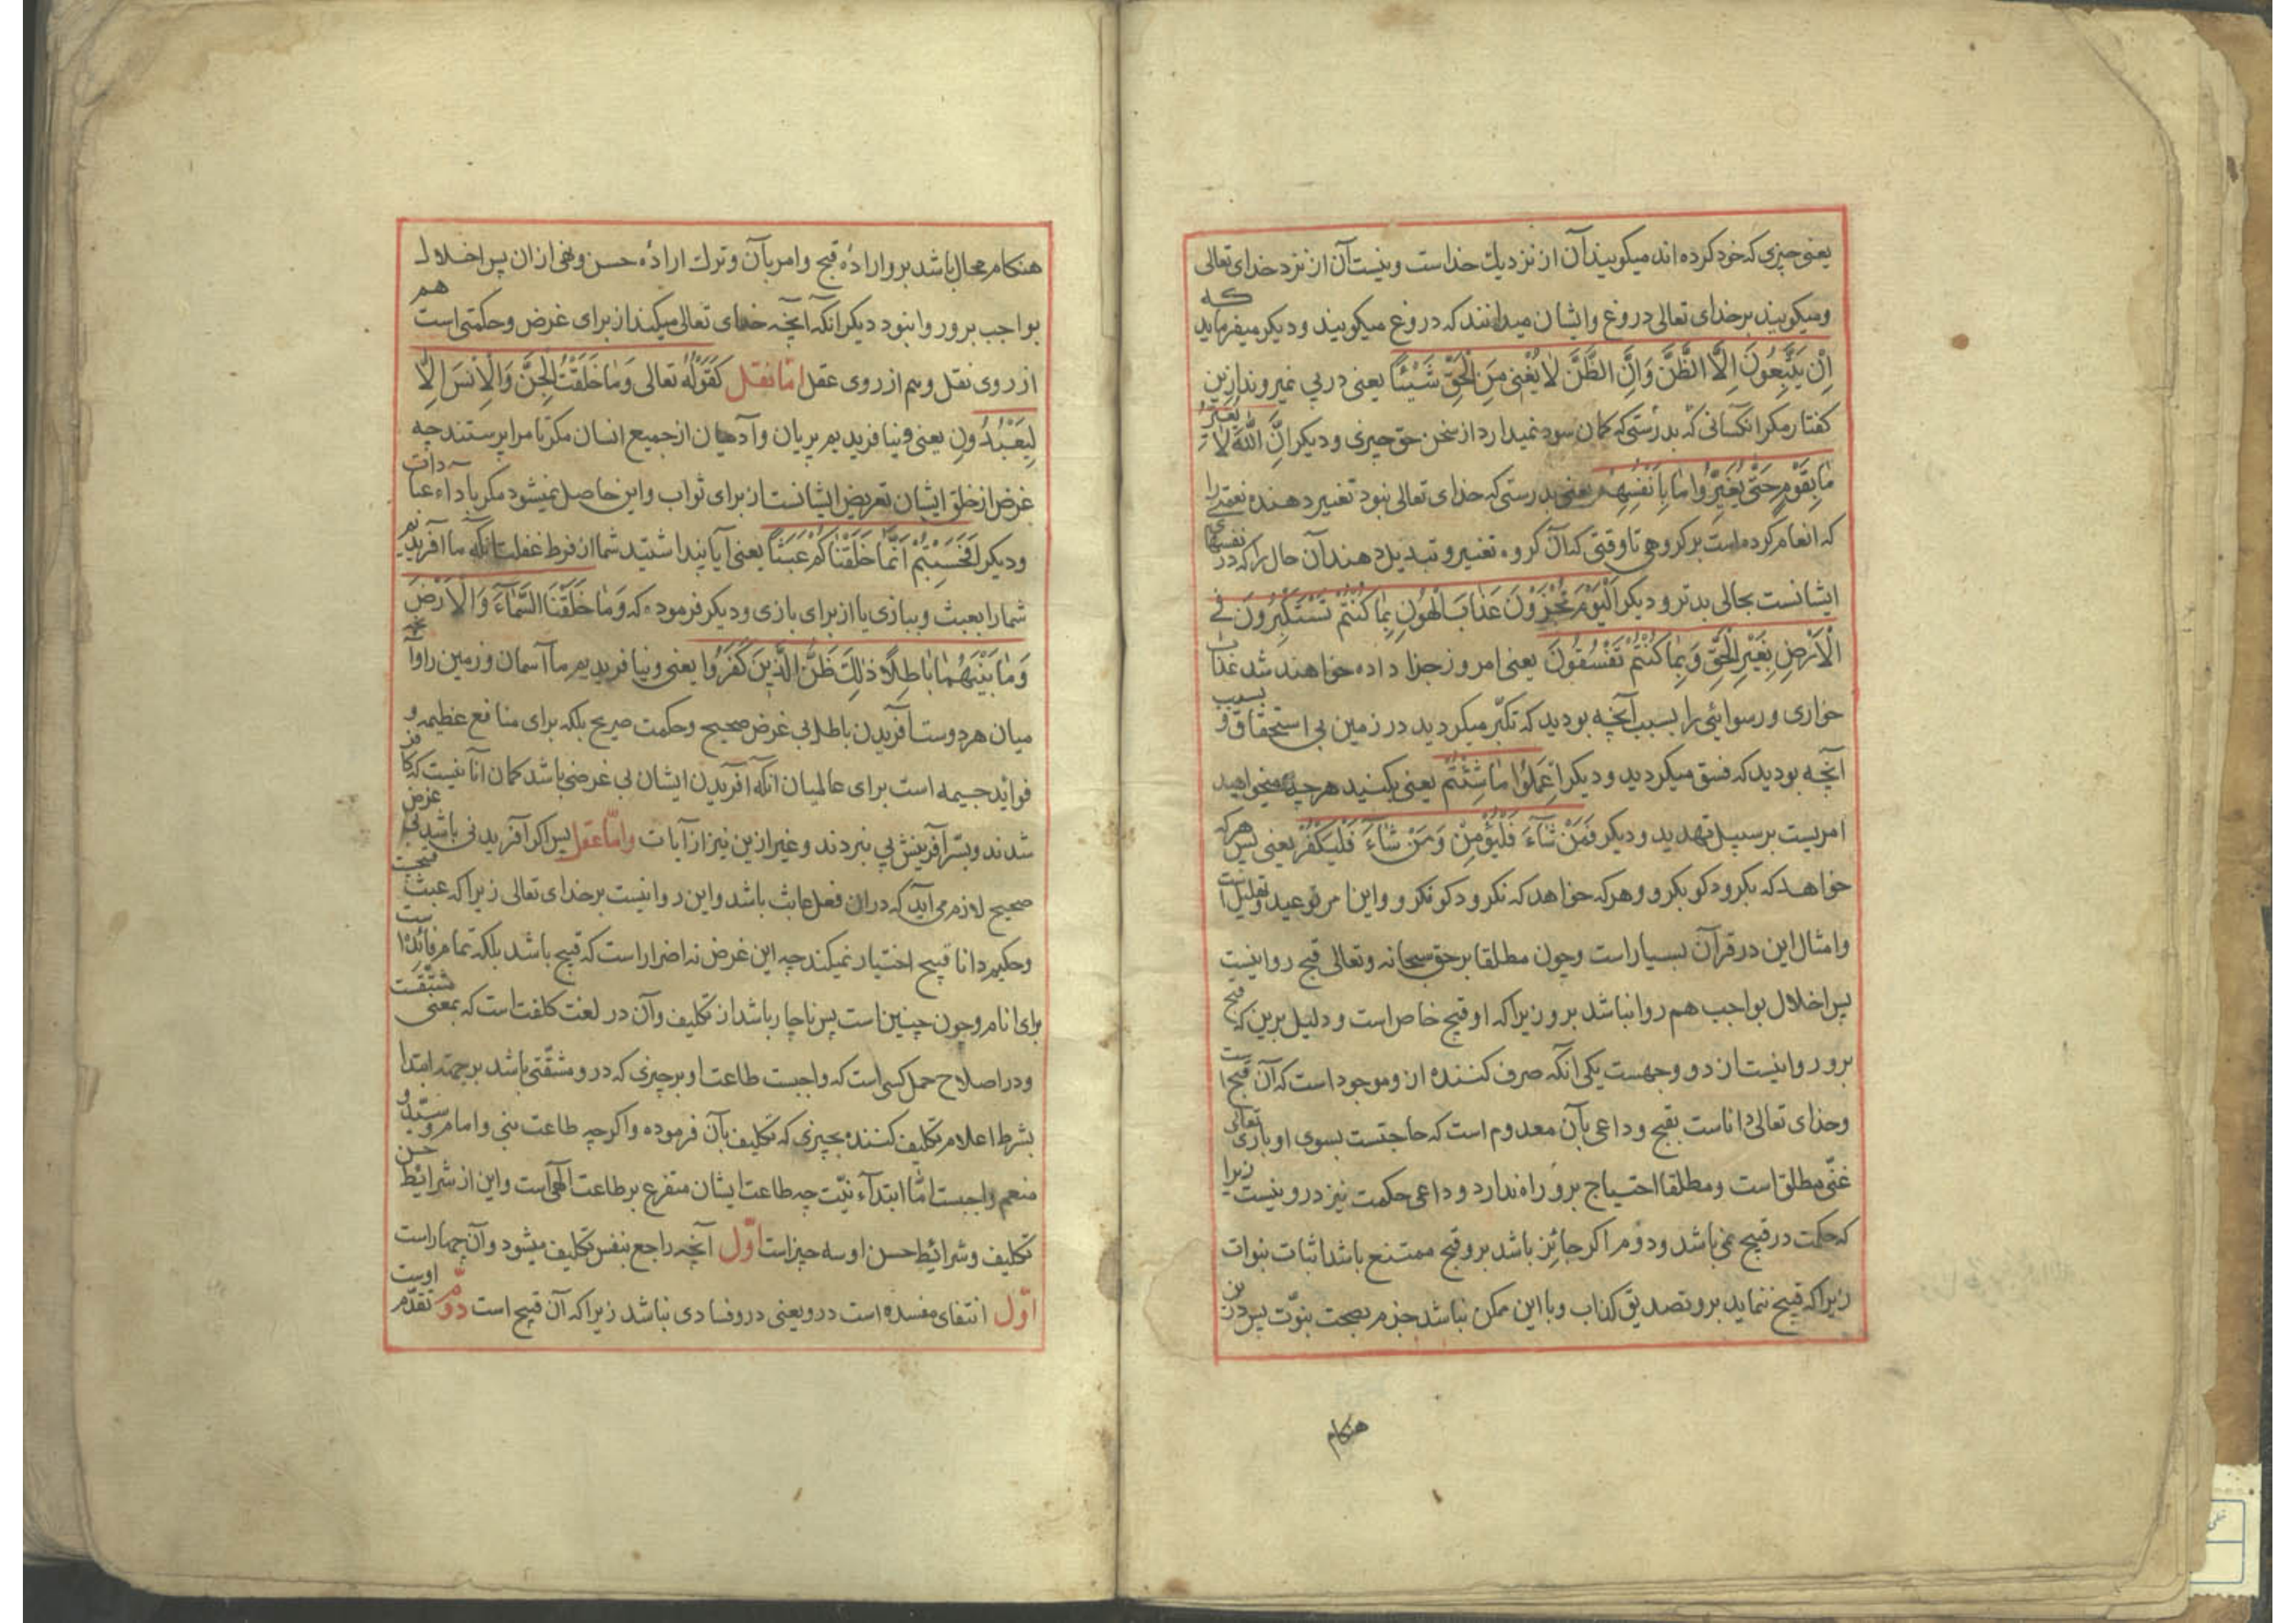 یعنی چیزی که خود کرده اند میکویند آن از نزدیك خداست و نیست آن از نزد خدای تعالی
ومیکویند برخدای تعالی دروغ وایشان میدانند که دروغ میکویند ودیکر میفرماید که
اِنْ یَتَّبِعُونَ اِلَّا الظَّنَّ وَاِنَّ الظَّنَّ لاٰ یُغْنی مِنَ الْحَقِّ شَیْئًا یعنی در پی نمیروند ازین
کفتار مکر انکسانی که بدرستی که کمان سود نمیدارد از سخن حق چیزی ودیکر اِنَّ اللّٰهَ لاٰ یُغَیِّرُ
مٰا بِقَوْمٍ حَتّٰی یُغَیِّرُوا مٰا بِاَنْفُسِهِمْ یعنی بدرستی که خدای تعالی نبود تغییر دهنده نعمتی را
که انعام کرده است بر کروهی تا وقتی که آن کروه تغییر و تبدیل دهند آن حال را که در نفسهای
ایشانست بحالی بدتر و دیکر اَلْیَوْمَ تُجْزَوْنَ عَذٰابَ الْهُونِ بِمٰا کُنْتُمْ تَسْتَکْبِرُونَ فی
الْاَرْضِ بِغَیْرِ الْحَقِّ وَبِمٰا کُنْتُمْ تَفْسُقُونَ یعنی امروز جزا داده خواهند شد عذاب
خواری و رسوائی را بسبب آنچه بودید که تکبّر میکردید در زمین بی استحقاق و بسبب
آنچه بودید که فسق میکردید و دیکر اِعْمَلُوا مٰا شِئْتُمْ یعنی بکنید هرچه میخواهید
امریست بر سبیل تهدید و دیکر فَمَنْ شٰآءَ فَلْیُؤْمِنْ وَمَنْ شٰآءَ فَلْیَکْفُرْ یعنی پس هر که
خواهد که بکرود کو بکرو و هرکه خواهد که نکرود کو نکرو و این امر توعید و تعلیل است
وامثال این در قرآن بسیار است وچون مطلقا برحق سبحانه وتعالی قبیح روا نیست
پس اخلال بواجب هم روا نباشد برو زیرا که او قبیح خاص است و دلیل برین که قبیح
برو روا نیست از دو وجهست یکی انکه صرف کننده ازو موجود است که آن قبح است
وخدای تعالی داناست بقبح و داعی بآن معدوم است که حاجتست بسوی او باری تعالی
غنّی مطلق است ومطلقا احتیاج برو راه ندارد و داعی حکمت نیز درو نیست زیرا
که حکمت در قبیح نمی باشد ودوّم اکر جائز باشد برو قبح ممتنع باشد اثبات نبوات
زیرا که قبیح ننماید برو تصدیق کذاب وبا این ممکن نباشد جزم بصحت نبوّت پس درین
هنکام
هنکام محال باشد برو ارادهٔ قبح وامر بآن وترك ارادهٔ حسن ونهی ازان پس اخلال
بواجب برو روا نبود دیکر انکه آنچه خدای تعالی میکند از برای غرض وحکمتی است هم
از روی نقل وهم از روی عقل امّا نقل کَقَوْلِهِ تعالی وَمٰا خَلَقْتُ الْجِنَّ وَالْاِنْسَ اِلّاٰ
لِیَعْبُدُونِ یعنی ونیافریدیم پریان وآدمیان از جمیع انسان مکر تا مرا پرستند چه
غرض از خلق ایشان تعریض ایشانست از برای ثواب واین حاصل نمیشود مکر بآداء عبادات
ودیکر اَفَحَسِبْتُمْ اَنَّمٰا خَلَقْنٰاکُمْ عَبَثًا یعنی آیا پنداشتید شما از فرط غفلت انکه ما آفریدیم
شما را بعبث وببازی یا از برای بازی ودیکر فرموده که وَمٰا خَلَقْنَا السَّمٰآءَ وَالْاَرْضَ
وَمٰا بَیْنَهُمٰا بٰاطِلًا ذٰلِكَ ظَنُّ الَّذِینَ کَفَرُوا یعنی ونیافریدیم ما آسمان وزمین را وآنچه
میان هردوست آفریدن باطلا بی غرض صحیح وحکمت صریح بلکه برای منافع عظیمه و
فواید جسیمه است برای عالمیان انکه آفریدن ایشان بی غرضی باشد کمان آنانیست که کافر
شدند وبسّر آفرینش پی نبردند وغیر ازین نیز از آیات وامّا عقل پس اکر آفریدنی باشد بی غرض
صحیح لازم می آید که دران فعل عابث باشد واین روا نیست برخدای تعالی زیرا که عبث قبیحست
وحکیم دانا قبیح اختیار نمیکند چه این غرض نه اضرار است که قبیح باشد بلکه تمام فائده است
برای انام وچون چنین است پس ناچار باشد از تکلیف وآن در لغت کلفت است که بمعنی مشقّتست
ودر اصلاح حمل کسی است که واجبست طاعت او بر چیزی که درو مشقّتی باشد برجهة ابتدا
بشرط اعلام تکلیف کننده بچیزی که تکلیف بآن فرموده واکرچه طاعت نبی وامام وسیّد و
منعم واجبست امّا ابتدآء نیّت چه طاعت ایشان متفرع برطاعت آلهی است واین از شرائط حسن
تکلیف وشرائط حسن او سه چیز است اوّل آنچه راجع بنفس تکلیف میشود وآن چهار است
اوّل انتفای مفسده است درو یعنی درو فسادی نباشد زیرا که آن قبیح است دوّم تقدّم اوست